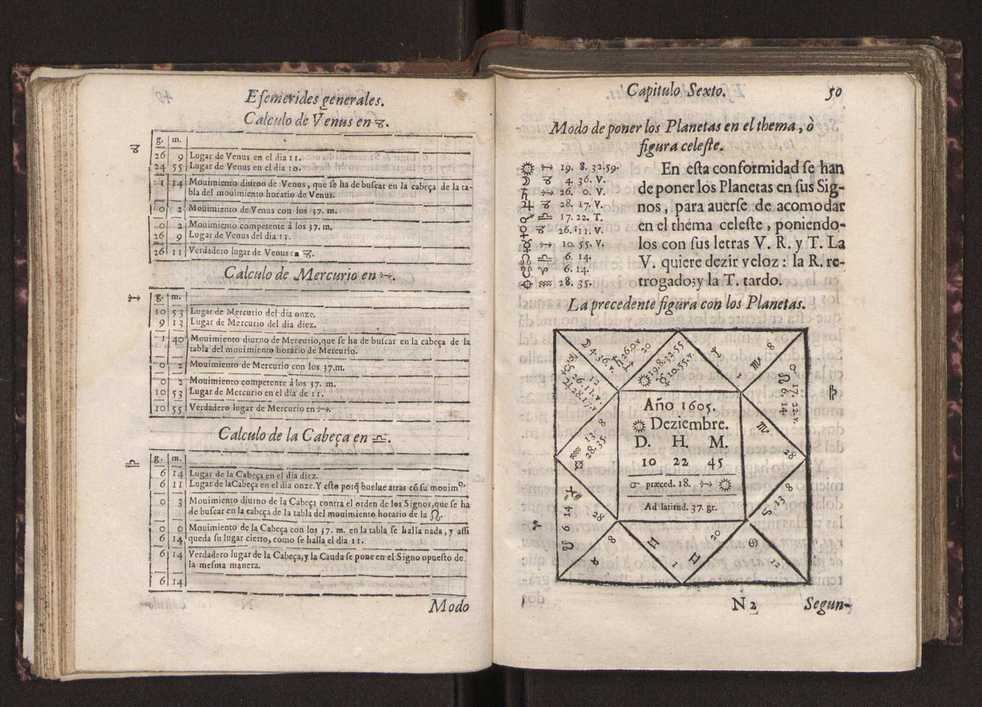 Efemerides generales.
Calculo de Venus en ♑.
g. m.
26 9 Lugar de Venus en el dia 11.
24 55 Lugar de Venus en el dia 10.
1 14 Mouimiento diurno de Venus, que se ha de buscar en la cabeça de la ta-
bla del mouimiento horario de Venus.
0 2 Mouimiento de Venus con los 37. m.
0 2 Mouimiento competente á los 37. m.
26 9 Lugar de Venus del dia 11.
26 11 Verdadero lugar de Venus en ♑.
Calculo de Mercurio en ♐.
g. m.
10 53 Lugar de Mercurio del dia onze.
9 13 Lugar de Mercurio del dia diez.
1 40 Mouimiento diurno de Mercurio, que se ha de buscar en la cabeça de la
tabla del mouimiento horario de Mercurio.
0 2 Mouimiento de Mercurio con los 37. m.
0 2 Mouimiento competente á los 37. m.
10 53 Lugar de Mercurio en el dia de 11.
10 55 Verdadero lugar de Mercurio en ♐.
Calculo de la Cabeça en ♎.
g. m.
6 14 Lugar de la Cabeça en el dia diez.
6 11 Lugar de la Cabeça en el dia onze. Y esto porq̃ buelue atras cō su mouim°.
0 3 Mouimiento diurno de la Cabeça contra el orden de los Signos, que se ha
de buscar en la cabeça de la tabla del mouimiento horario de la ☊.
0 0 Mouimiento de la Cabeça con los 37. m. en la tabla se halla nada, y assi
6 14 queda su lugar cierto, como se halla el dia 11.
6 14 Verdadero lugar de la Cabeça, y la Cauda se pone en el Signo opuesto de
la mesma manera.
6 14
Modo
Capitulo Sexto. 50
Modo de poner los Planetas en el thema, ò
figura celeste.
☼ ♐ 19. 8. 32. 59.
☽ ♑ 4. 36. V.
♄ ♐ 26. 0. V.
♃ ♑ 28. 17. V.
♂ ♎ 17. 22. T.
♀ ♑ 26. 11. V.
☿ ♐ 10. 55. V.
☊ ♎ 6. 14.
☋ ♈ 6. 14.
♒ 28. 35.
En esta conformidad se han
de poner los Planetas en sus Sig-
nos, para auerse de acomodar
en el thema celeste, poniendo-
los con sus letras V. R. y T. La
V. quiere dezir veloz: la R. re-
trogado; y la T. tardo.
La precedente figura con los Planetas.
Año 1605.
☼ Deziembre.
D. H. M.
10 22 45
☌ præced. 18. ♐ ☼
Ad latitud. 37. gr.
N 2 Segun-